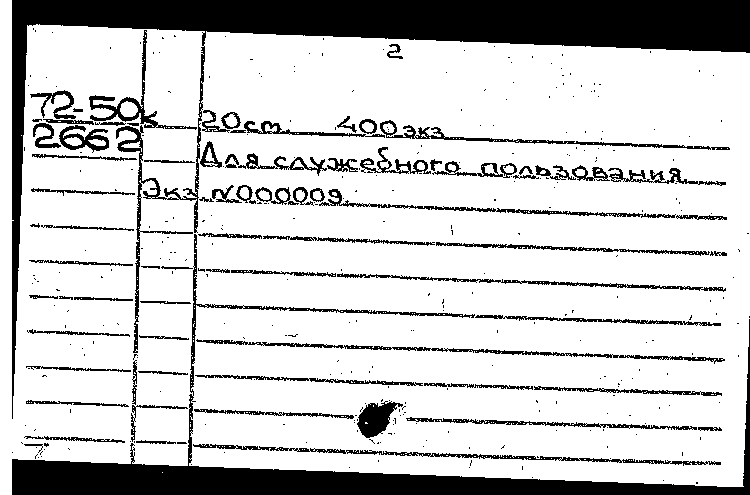 2
72-50к 20см. 400экз
2662
Для служебного пользования.
Экз.N000009.